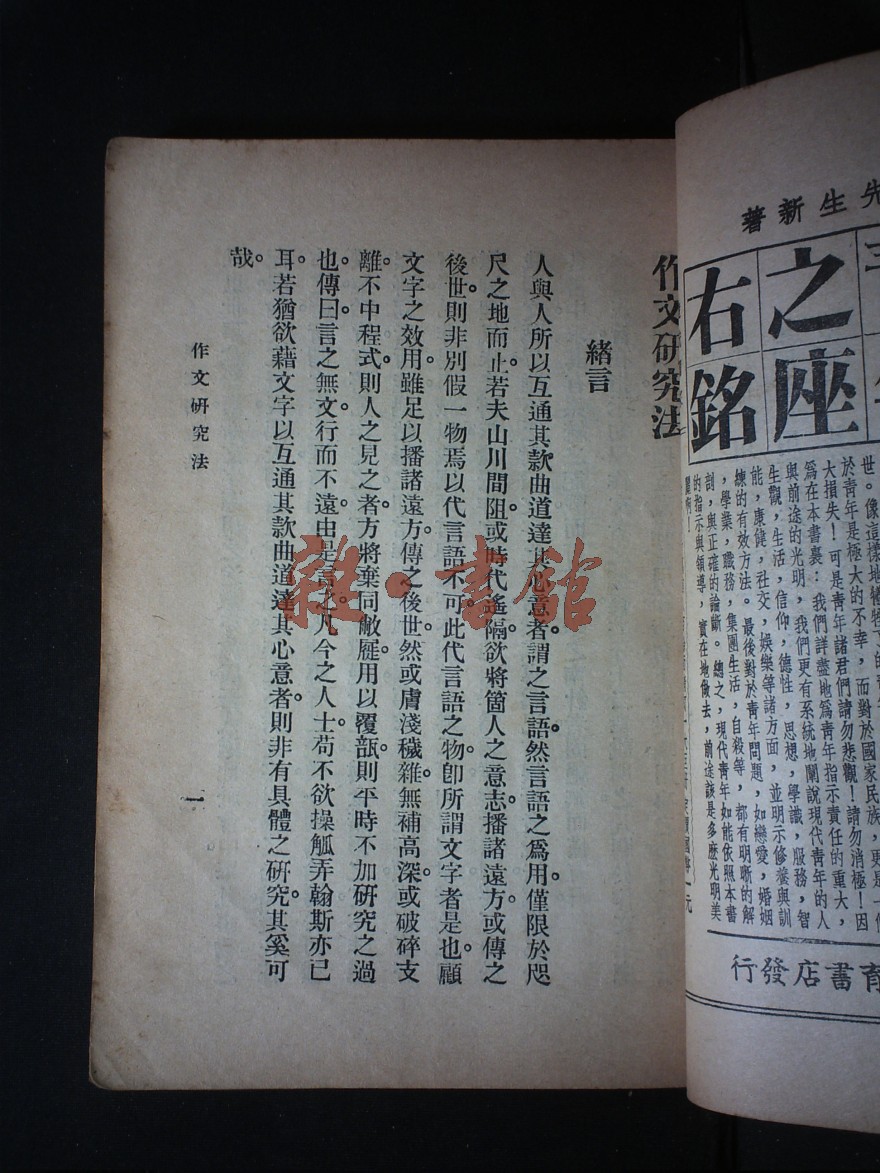 先生新著
之座
右銘
世。像這樣地犧牲了的青年
於青年是極大的不幸，而對於國家民族，更是一個
大損失！可是青年諸君們請勿悲觀！請勿消極！因
爲在本書裏：我們詳盡地爲青年指示責任的重大，
與前途的光明，我們更有系統地闡說現代青年的人
生觀，生活，信仰，德性，思想，學識，服務，智
能，康健，社交，娛樂等諸方面，並明示修養與訓
練的有效方法。最後對於青年問題，如戀愛，婚姻
，學業，職務，集團生活，自殺等，都有明晰的解
剖，與正確的論斷。總之，現代青年如能依照本書
的指示與領導，實在地做去，前途該是多麽光明美
一元
育書店發行
作文研究法
緒言
人與人所以互通其款曲道達其心意者。謂之言語。然言語之爲用。僅限於咫
尺之地而止。若夫山川間阻。或時代遙隔。欲將箇人之意志。播諸遠方。或傳之
後世。則非別假一物焉以代言語不可。此代言語之物。卽所謂文字者是也。顧
文字之效用。雖足以播諸遠方。傳之後世。然或膚淺穢雜。無補高深。或破碎支
離。不中程式。則人之見之者。方將棄同敝屣。用以覆瓿。則平時不加研究之過
也。傳曰。言之無文。行而不遠。由是言之。凡今之人士。苟不欲操觚弄翰。斯亦已
耳。若猶欲藉文字以互通其款曲道達其心意者。則非有具體之研究。其奚可
哉。
作文研究法
一
雜·書館